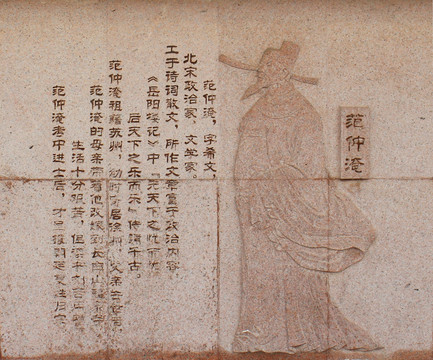 范仲淹
范仲淹，字希文，
北宋政治家、文学家。
工于诗词散文，所作文章富于政治内容，
《岳阳楼记》中“先天下之忧而忧
后天下之乐而乐”传诵千古。
范仲淹祖籍苏州，幼时居徐州，父亲去世
范仲淹的母亲带着他改嫁到长白山
生活十分艰苦，但读书刻苦
范仲淹考中进士后，才